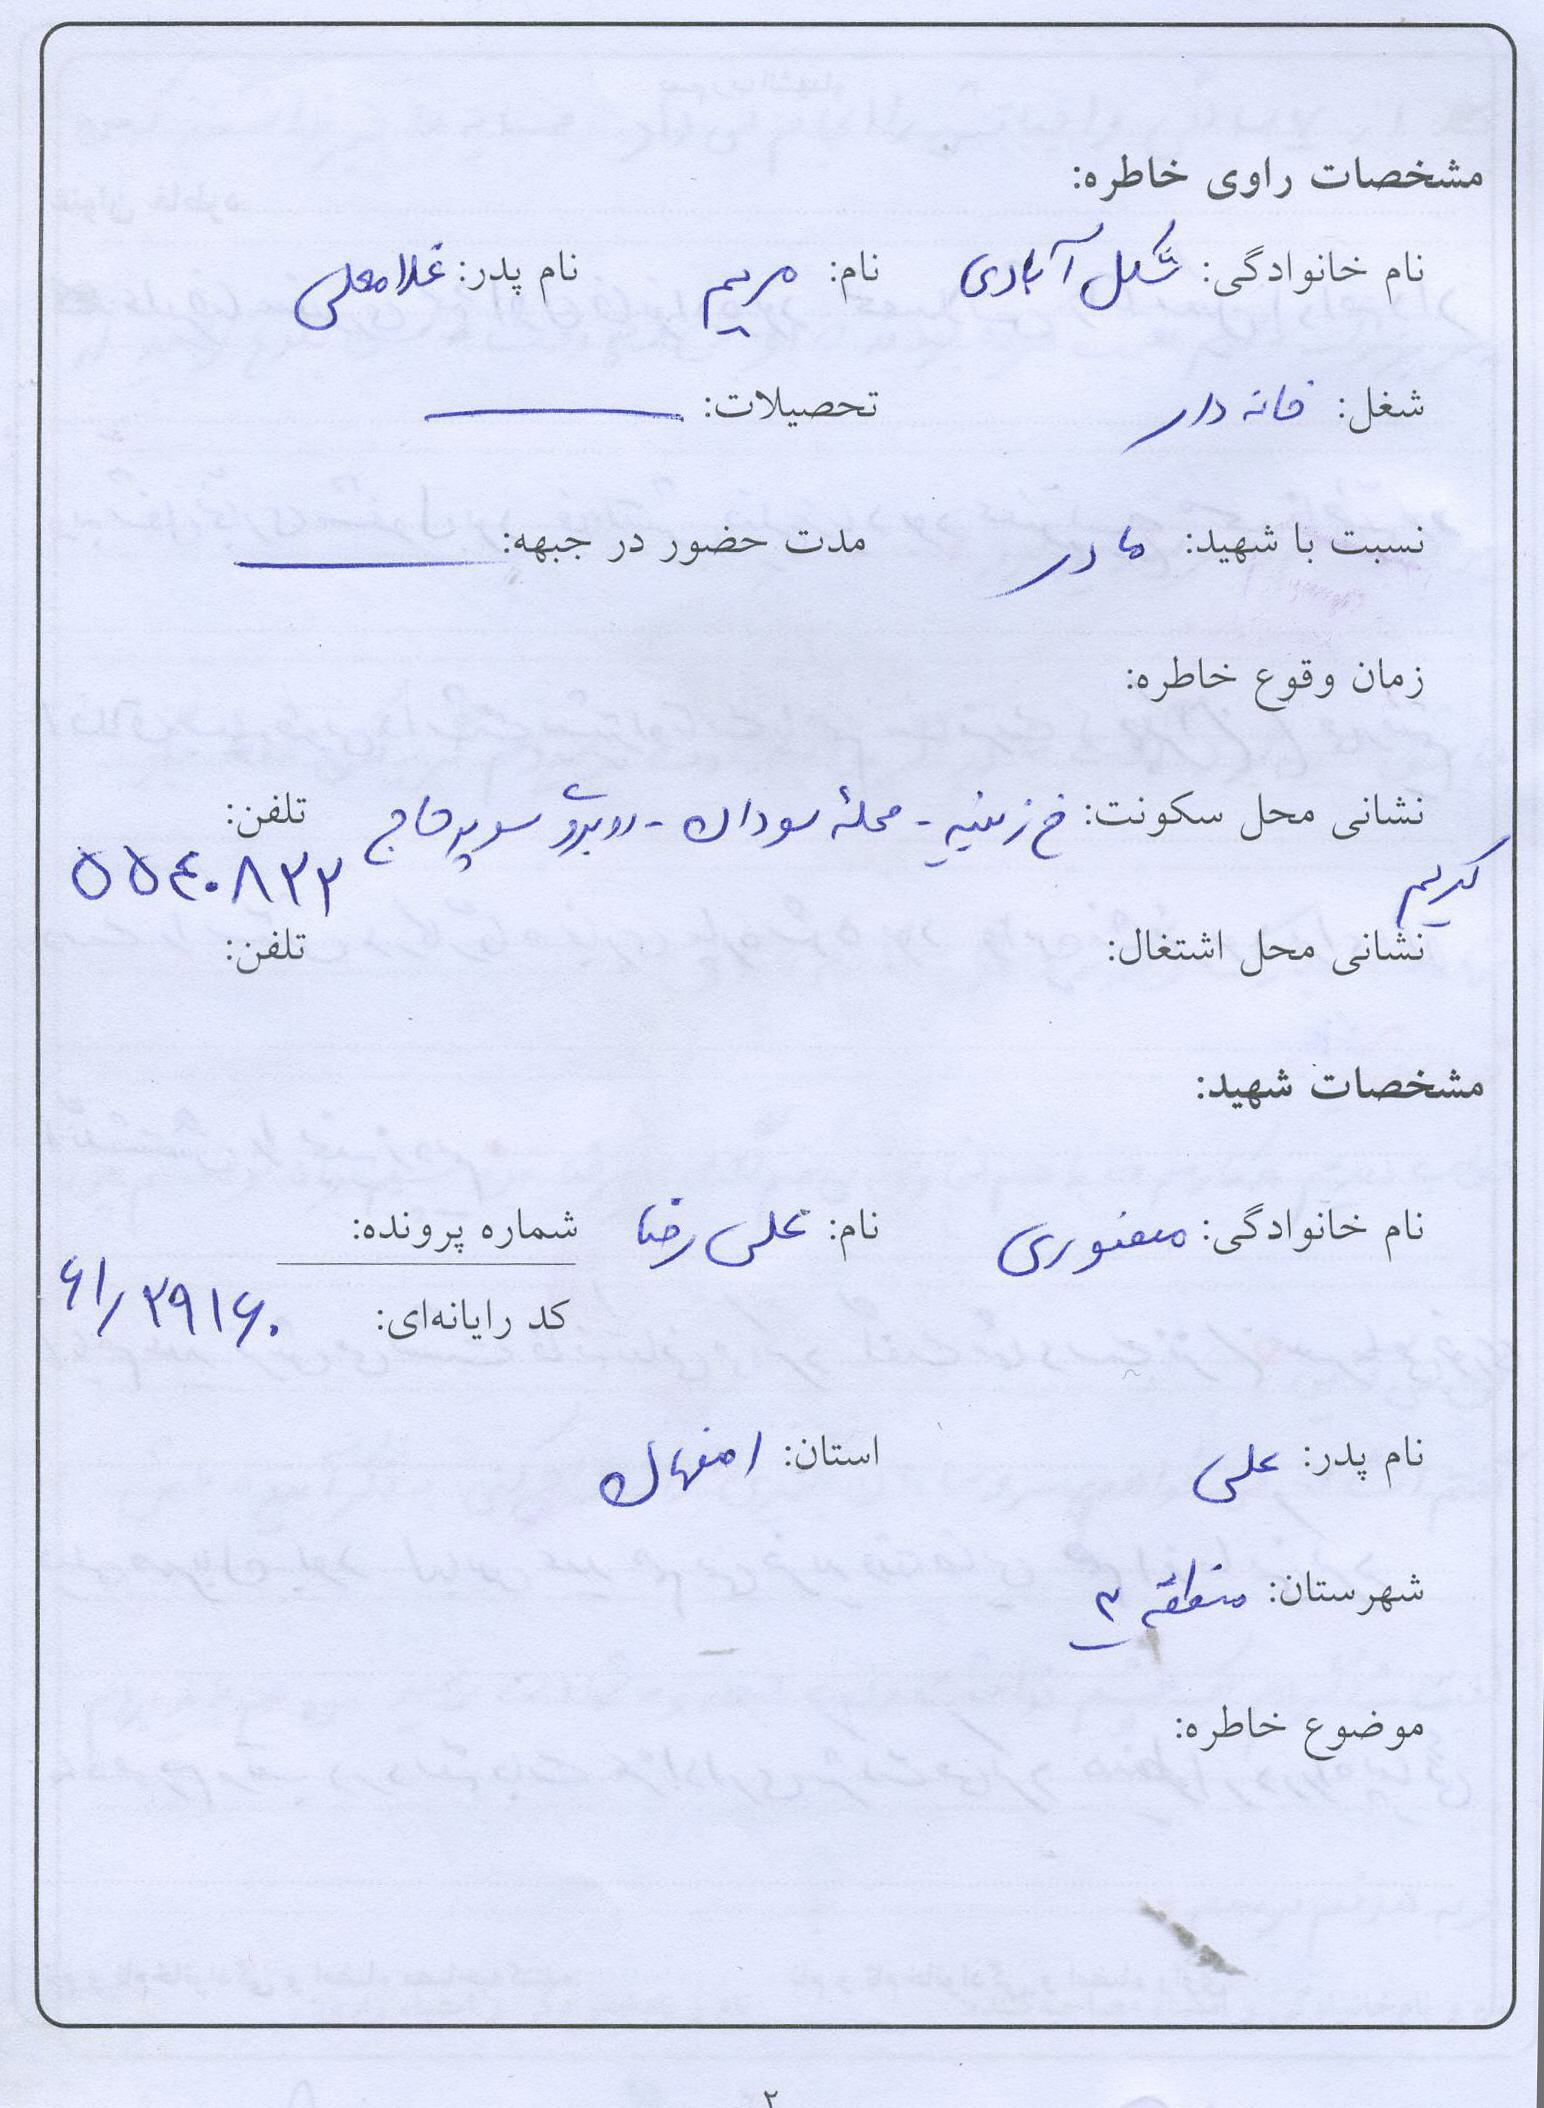 مشخصات راوی خاطره:
نام خانوادگی: شکل آبادی نام: مریم نام پدر: غلامعلی
شغل: خانه دار تحصیلات: ـــــــــ
نسبت با شهید: مادر مدت حضور در جبهه: ـــــــــ
زمان وقوع خاطره:
نشانی محل سکونت: خ زینبیه - محلهٔ سودان - روبروی سوپر حاج تلفن:
کریم ۵۵۴۰۸۲۲
نشانی محل اشتغال: تلفن:
مشخصات شهید:
نام خانوادگی: صفوری نام: علی رضا شماره پرونده:
کد رایانه‌ای: ۶۱/۲۹۱۶۰
نام پدر: علی استان: اصفهان
شهرستان: منطقه ۳
موضوع خاطره:
۲